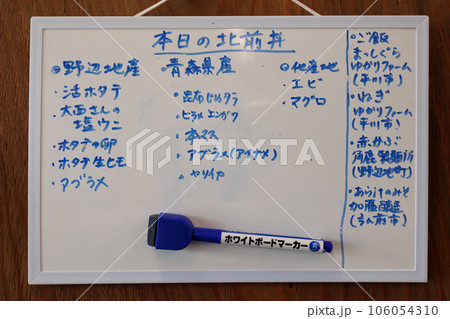 本日の北前丼
◎野辺地産
・活ホタテ
・大西さんの
塩ウニ
・ホタテの卵
・ホタテ生ヒモ
・アブラメ
◎青森県産
・昆布じめタラ
・ヒラメエンガワ
・本マス
・アブラメ(アイナメ)
・ヤリイカ
◎他産地
・エビ
・マグロ
・ご飯
まっしぐら
ゆかりファーム
(平川市)
・ねぎ
ゆかりファーム
(平川市)
・赤かぶ
角鹿製麺所
(野辺地町)
・あら汁のみそ
加藤醸造
ホワイトボードマーカー
PIXTA
pixta.jp - 106054310